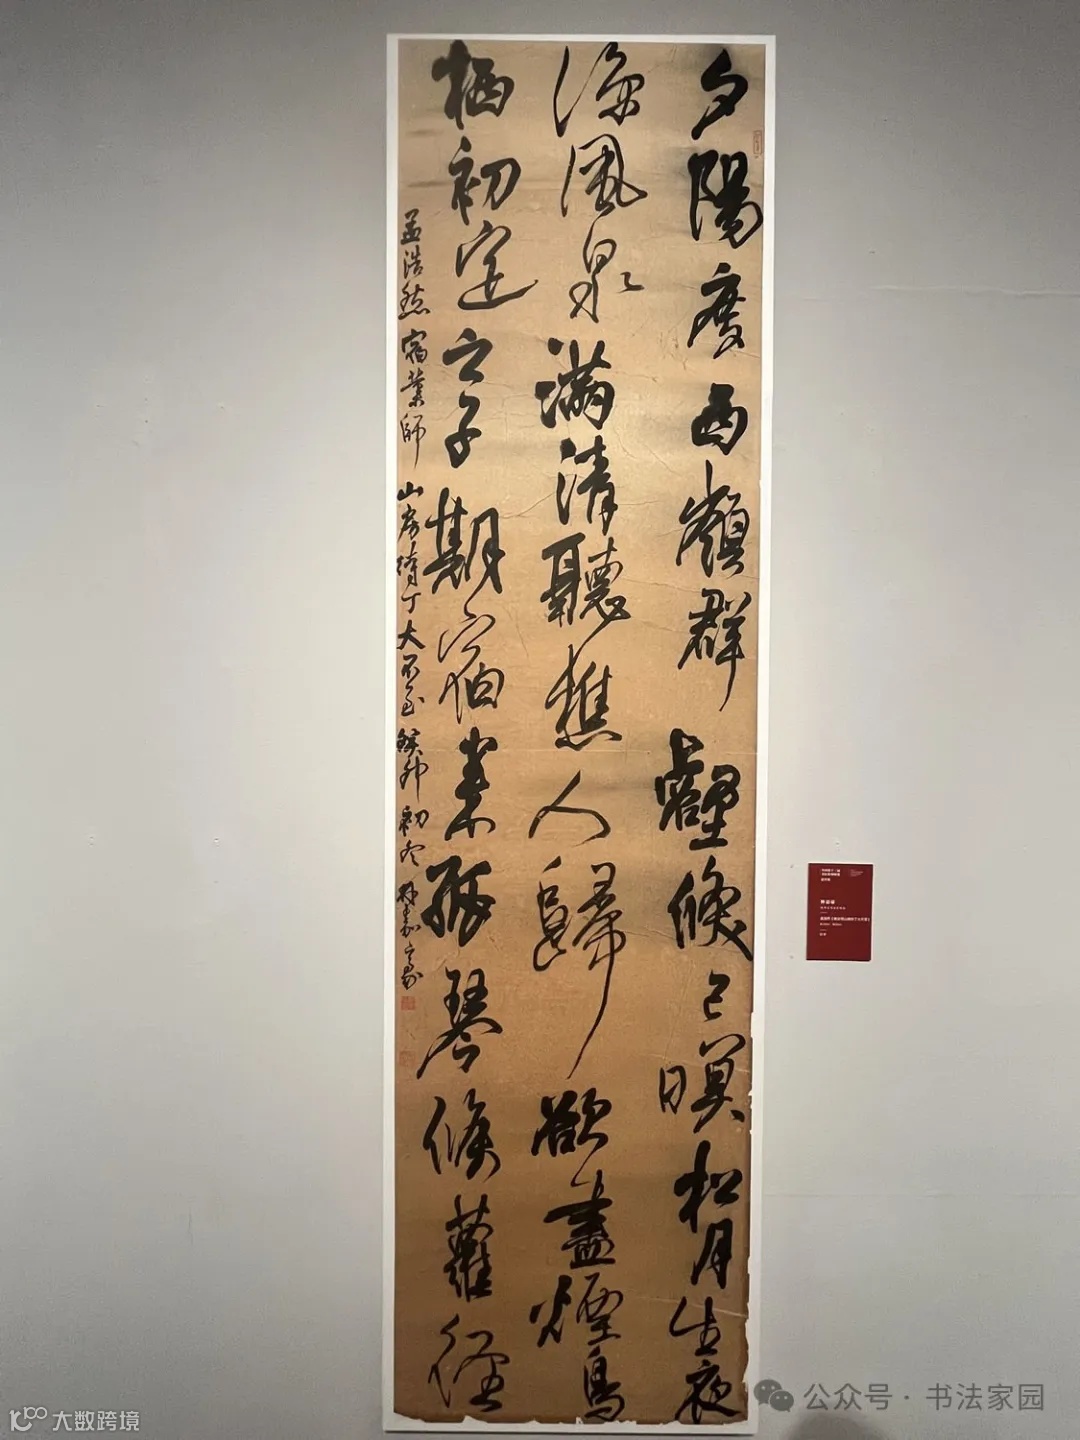 夕陽度西嶺群壑倏已暝松月生夜
涼風泉滿清聽樵人歸欲盡煙鳥
栖初定之子期宿來孤琴候蘿径
孟浩然宿業師山房待丁大不至癸卯初冬
公众号·书法家园
大数跨境